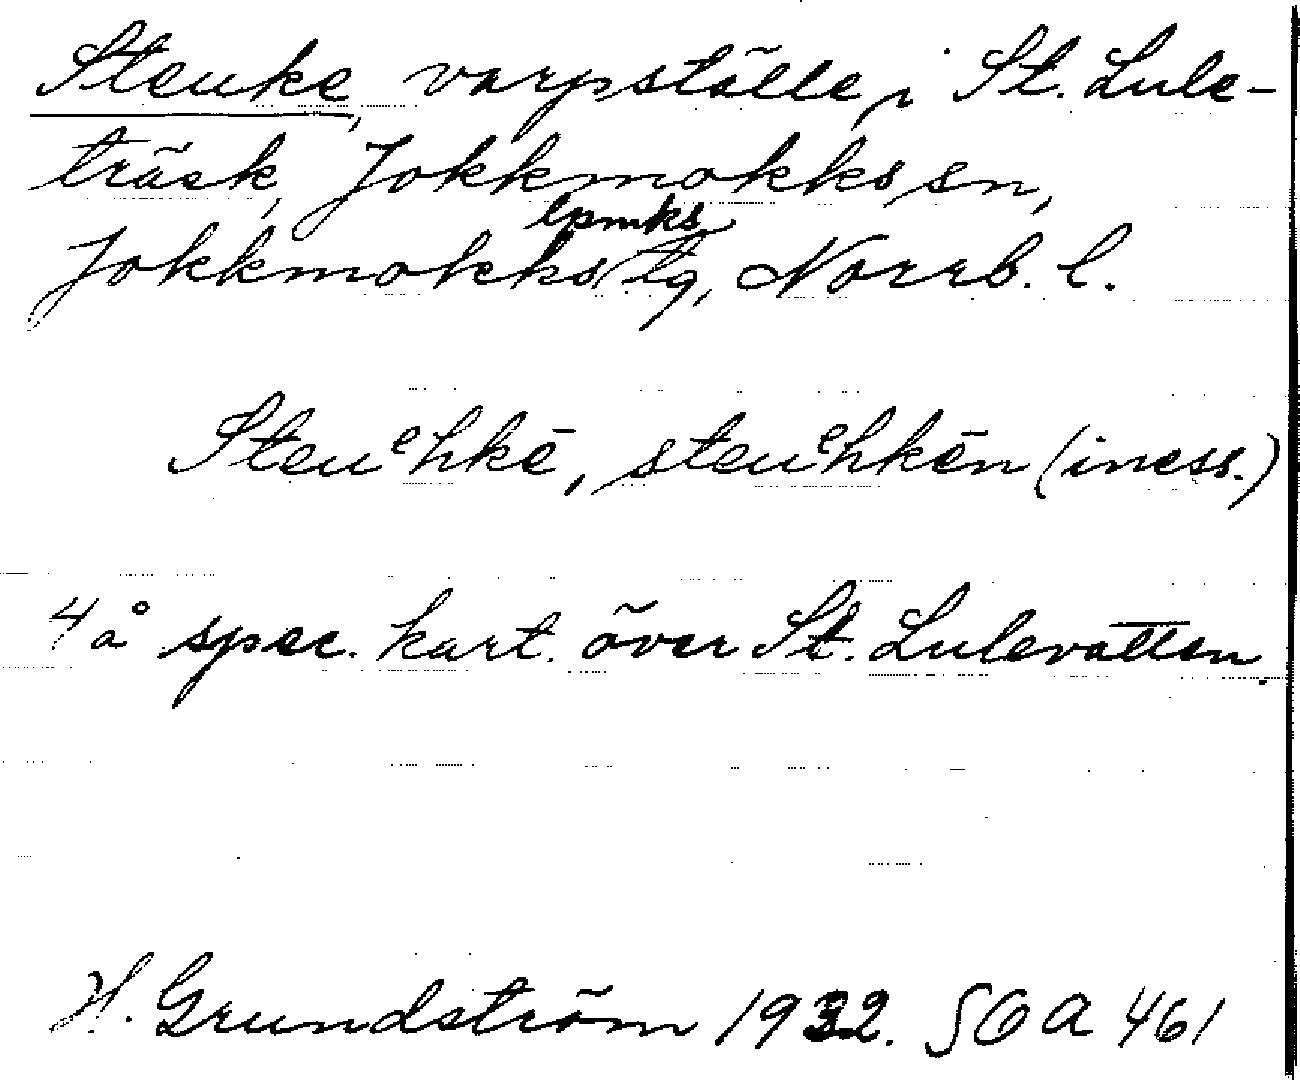 Steuke, varpställe i St. Lule-
träsk, Jokkmokks sn,
lpmks
Jokkmokks tg, Norrb. l.
Steuᵉhkē, steuᵉhkēn (iness.)
4 å spec. kart. över St. Lulevatten.
H. Grundström 1932. SOA 461